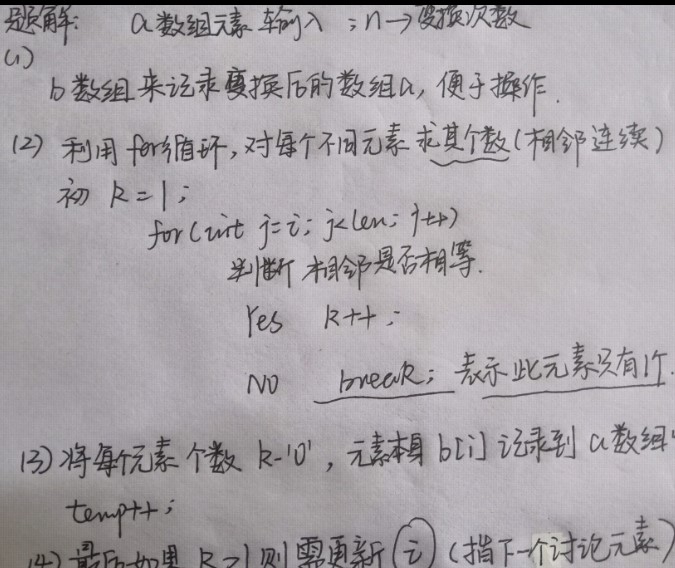 题解: a数组元素输入 ; n→变换次数
(1)
b数组来记录变换后的数组a, 便于操作.
(2) 利用for循环, 对每个不同元素求其个数(相邻连续)
初 k=1;
for(int j=i; j<len; j++)
判断相邻是否相等.
Yes k++;
NO break; 表示此元素只有1个.
(3) 将每个元素个数 k-'0', 元素本身 b[i] 记录到 a数组中
temp++;
(4) 最后如果 k>1 则需更新 i (指下一个讨论元素)